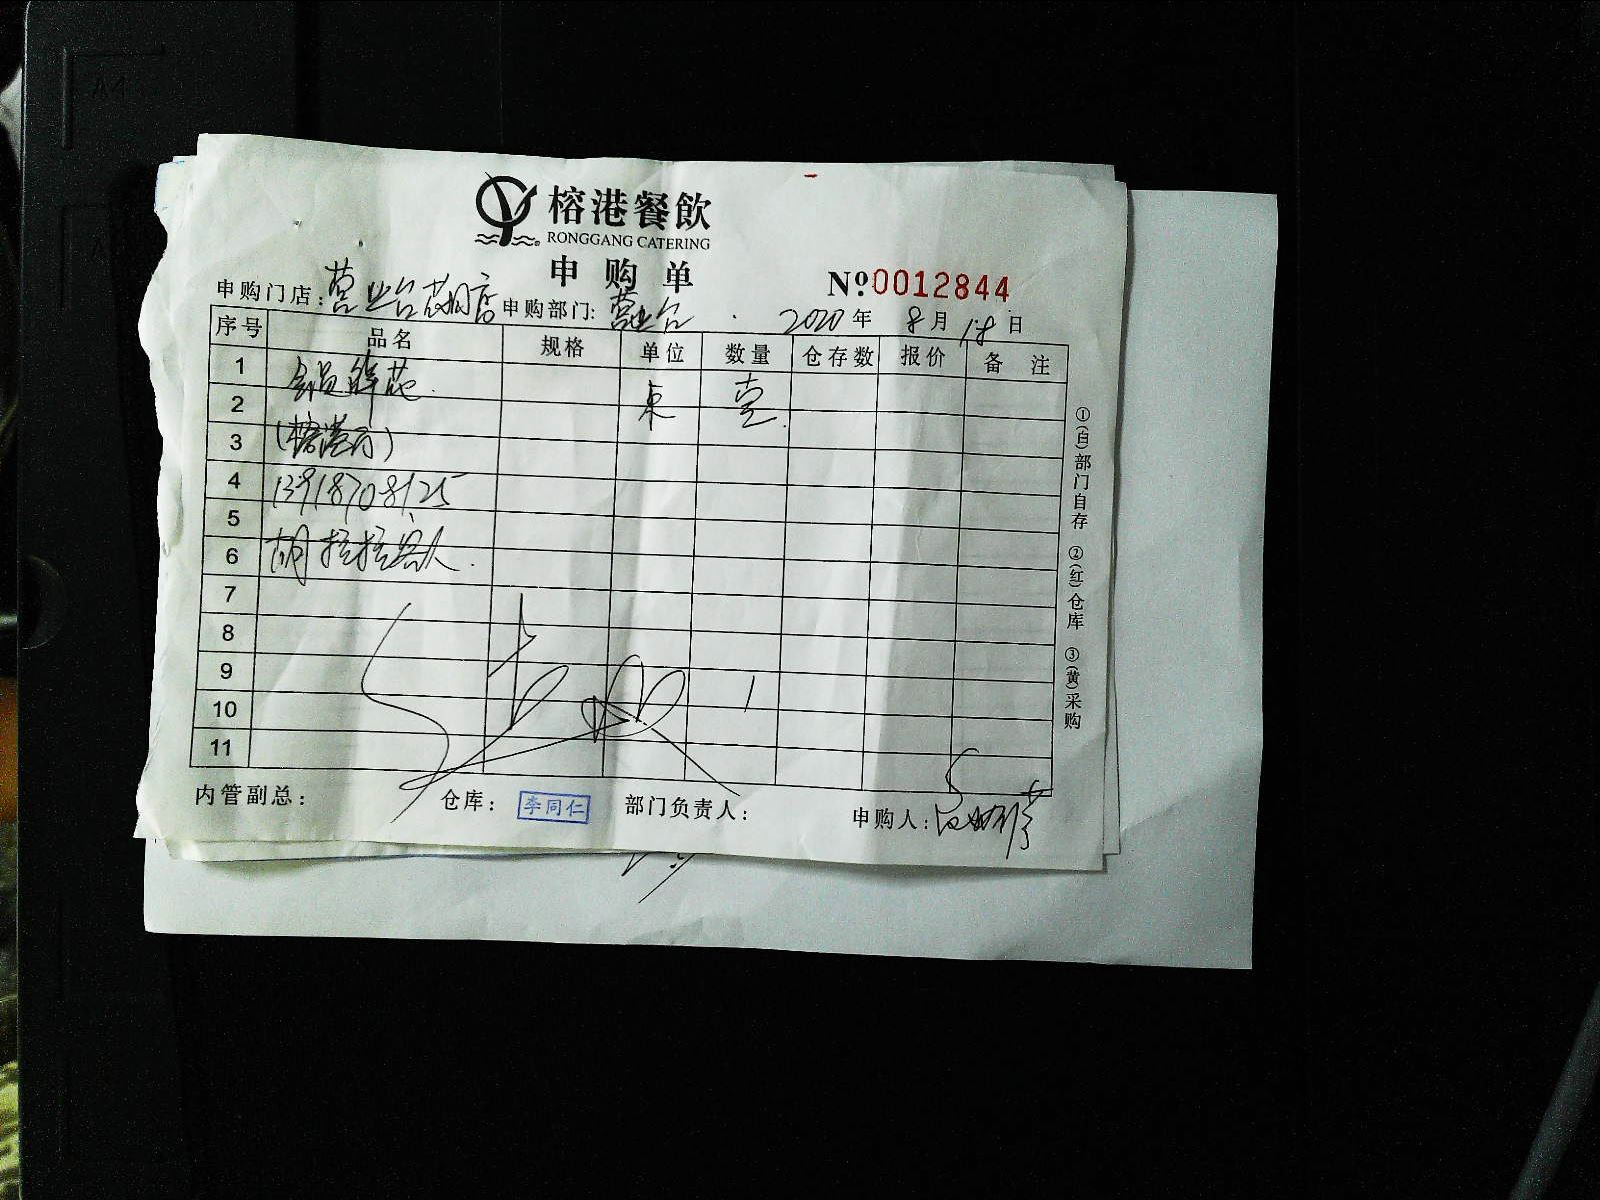 榕港餐飲
RONGGANG CATERING
申购单
№0012844
申购门店: 营业台 店 申购部门: 营业台 2020年 8月 18日
序号 品名 规格 单位 数量 仓存数 报价 备注
1 鲜花
2 束 壹
3 (榕港厅)
4 13918708125
5
6 胡拉拉 人
7
8
9
10
11
内管副总: 仓库: 李同仁 部门负责人: 申购人:
①(白)部门自存 ②(红)仓库 ③(黄)采购